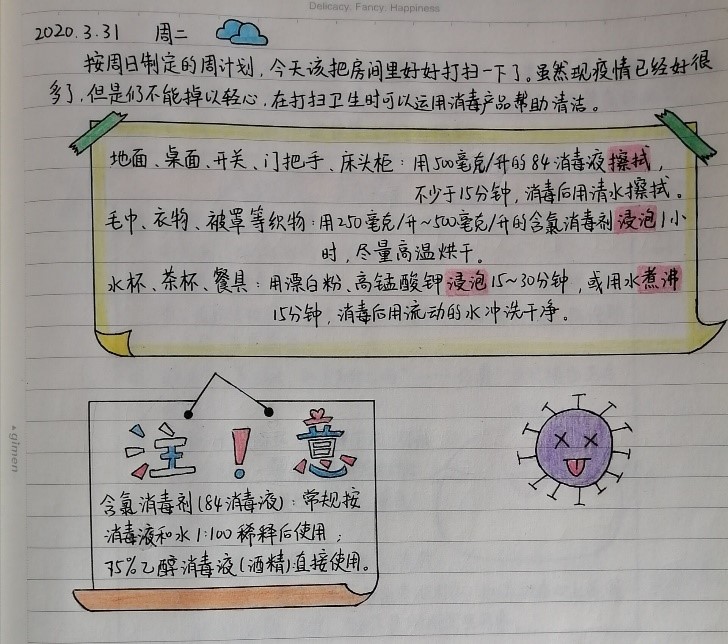 Delicacy. Fancy. Happiness
2020.3.31 周二
按周日制定的周计划，今天该把房间里好好打扫一下了。虽然现疫情已经好很
多了，但是们不能掉以轻心，在打扫卫生时可以运用消毒产品帮助清洁。
地面、桌面、开关、门把手、床头柜：用500毫克/升的84消毒液擦拭，
不少于15分钟，消毒后用清水擦拭。
毛巾、衣物、被罩等织物：用250毫克/升~500毫克/升的含氯消毒剂浸泡1小
时，尽量高温烘干。
水杯、茶杯、餐具：用漂白粉、高锰酸钾浸泡15~30分钟，或用水煮沸
15分钟，消毒后用流动的水冲洗干净。
注！意
含氯消毒剂(84消毒液)：常规按
消毒液和水1:100稀释后使用；
75%乙醇消毒液(酒精)直接使用。
gimen